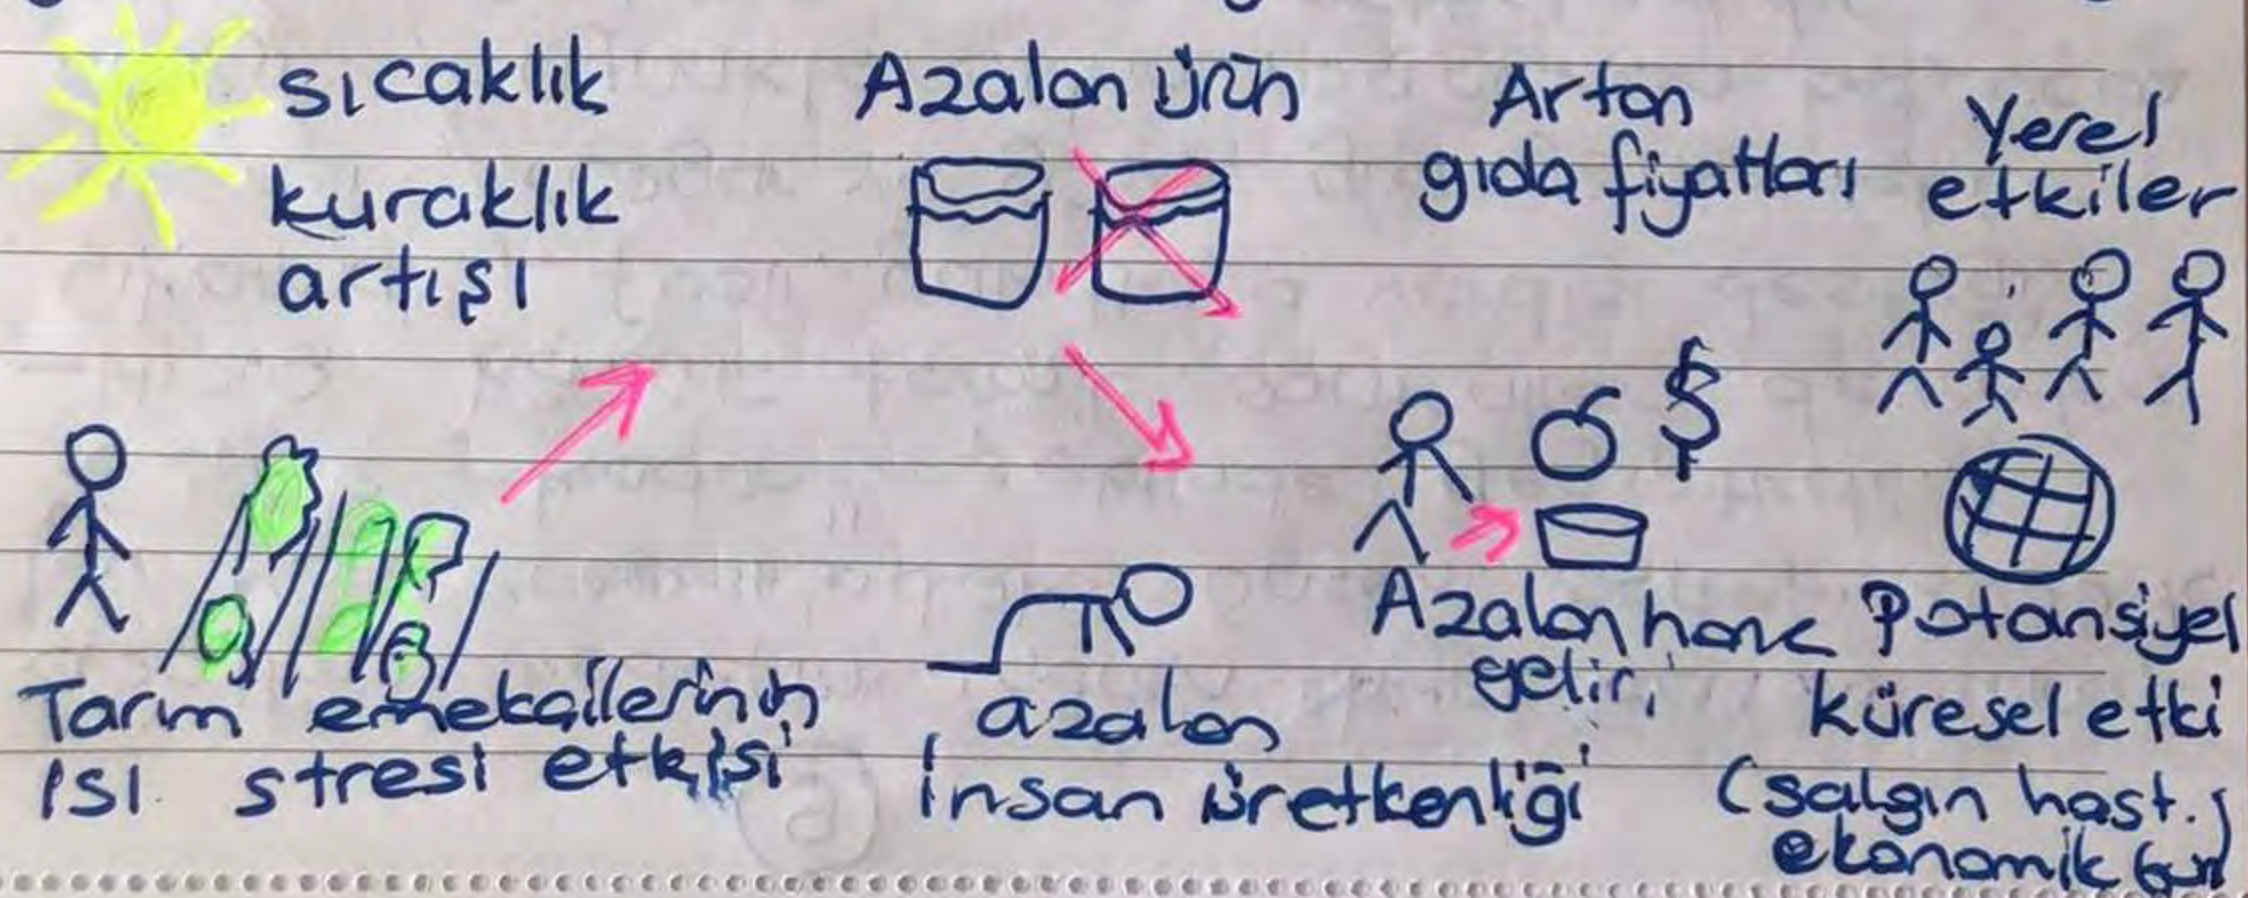 sıcaklık
kuraklık
artışı
Azalan ürün
Artan
gıda fiyatları
Yerel
etkiler
$
Tarım emekçilerinin
ısı stresi etkisi
azalan
insan üretkenliği
Azalan hane
geliri
Potansiyel
küresel etki
(salgın hast.
ekonomik